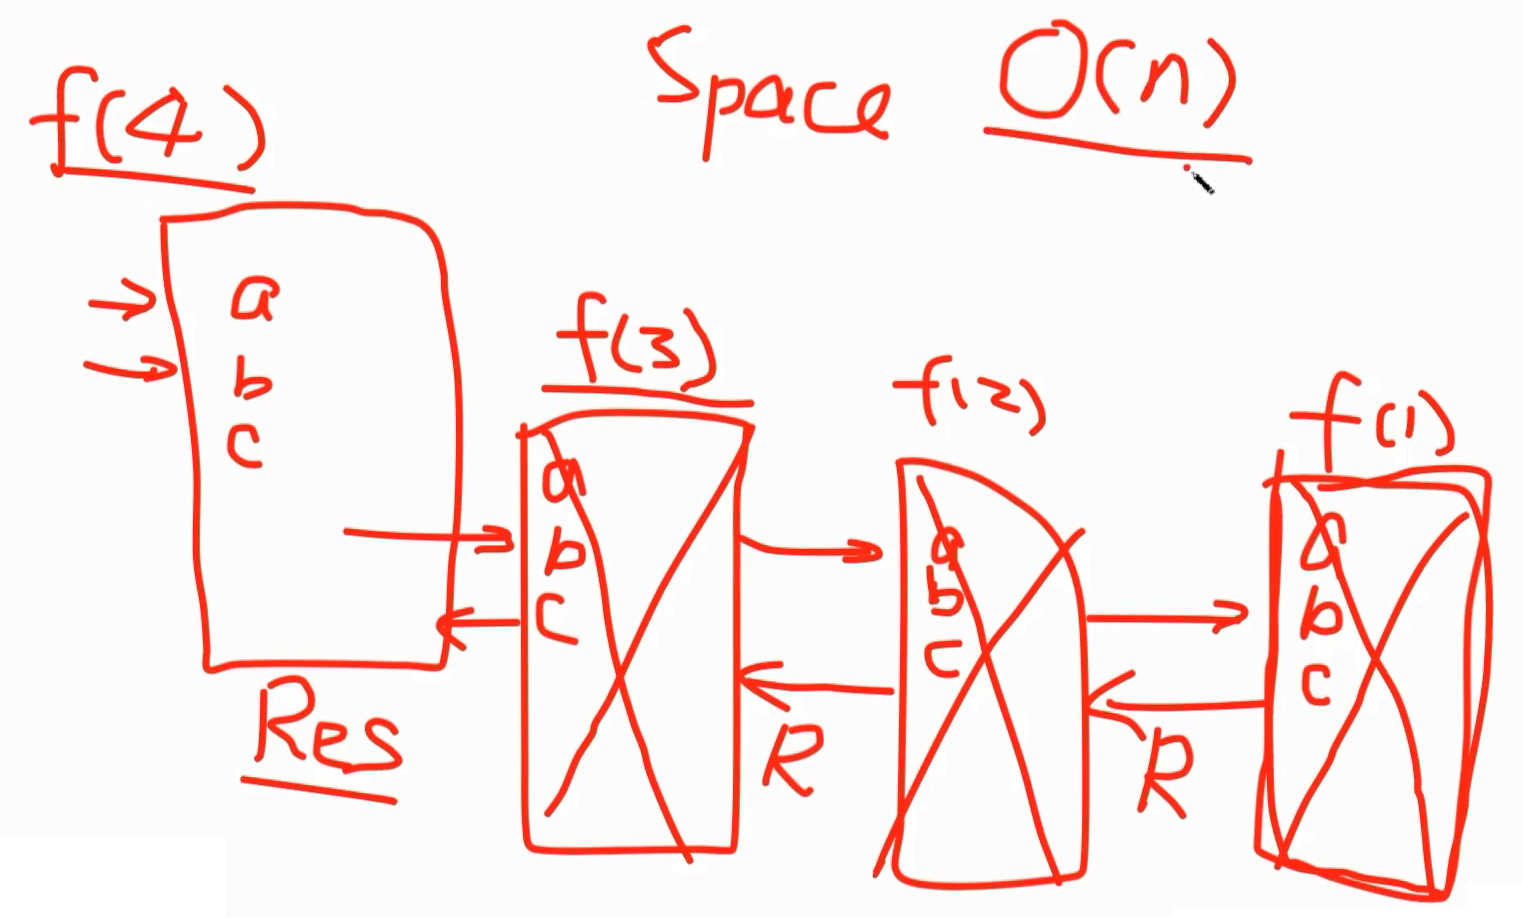 Space O(n)
f(4)
a
b
c
Res
f(3)
a
b
c
R
f(2)
a
b
c
R
f(1)
a
b
c